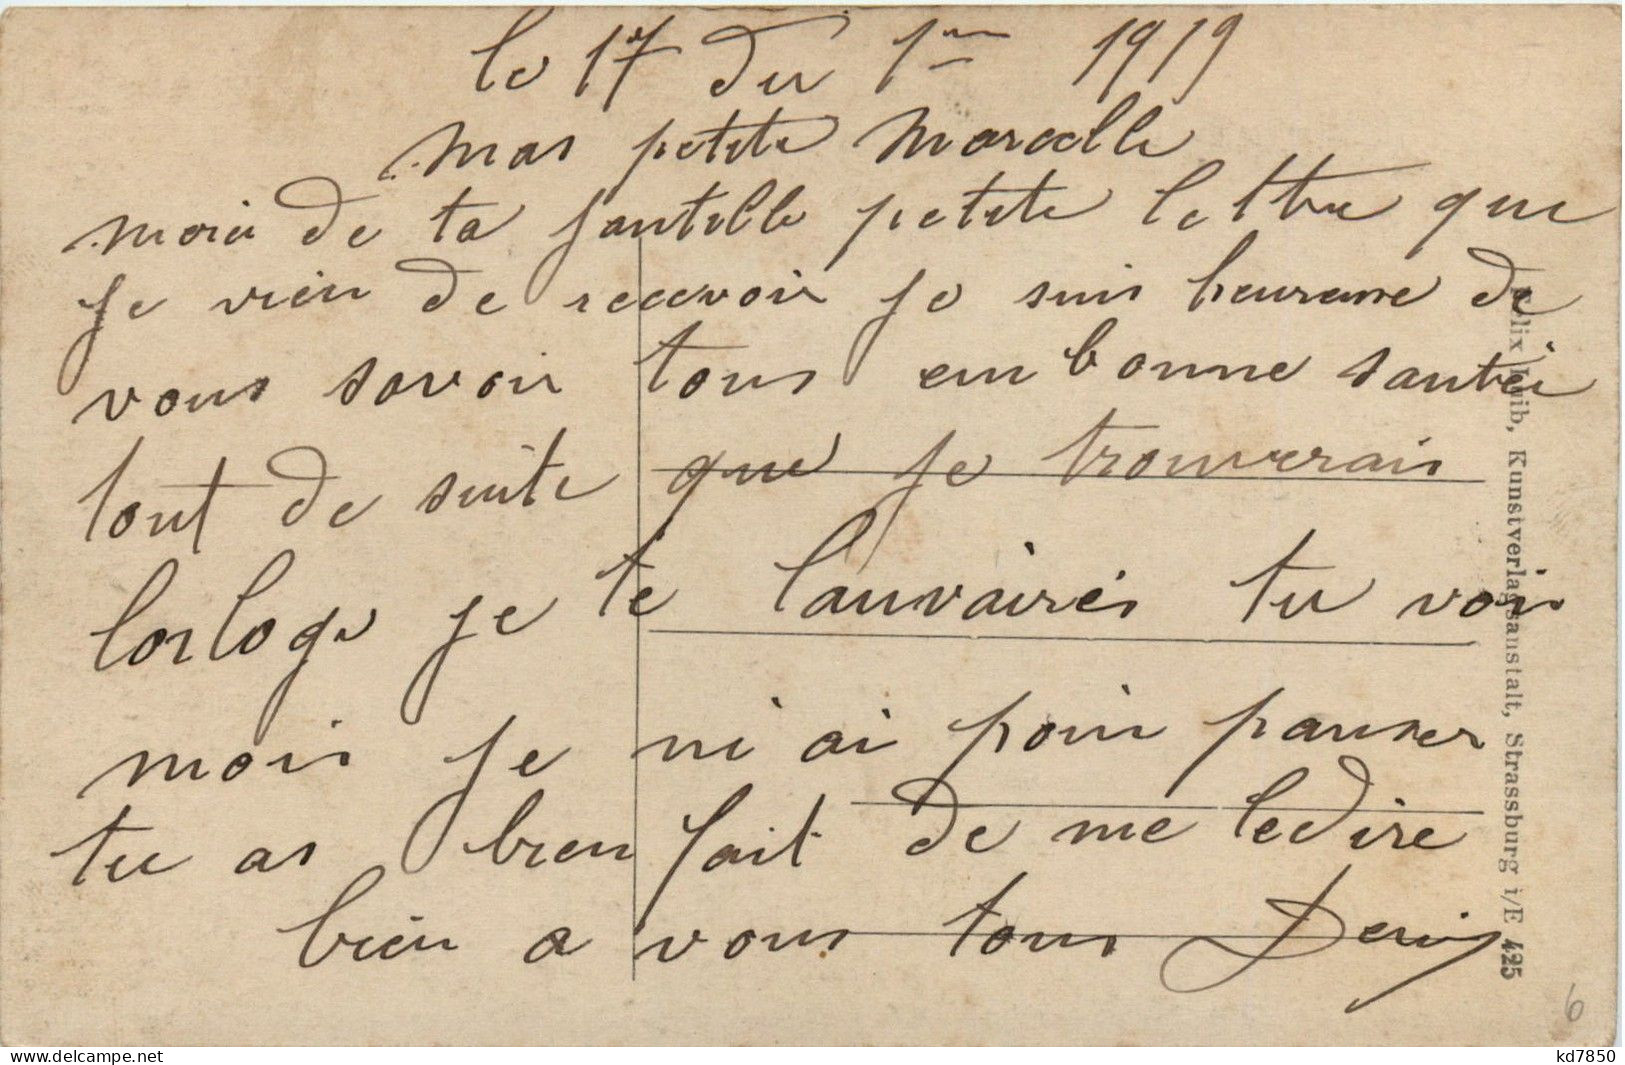 le 17 du 1er 1919
mas petite Marcelle
moir de ta jantille petite lettre que
je vien de recevoir je suis heureuse de
vous savoir tous em bonne santéi
tout de suite que je trouverais
lorloge je te lauvairés tu vois
mois je ni ai poin panser
tu as bien fait de me ledire
bien a vous tous Denis
Luib, Kunstverlagsanstalt, Strassburg i/E 425
6
kd7850